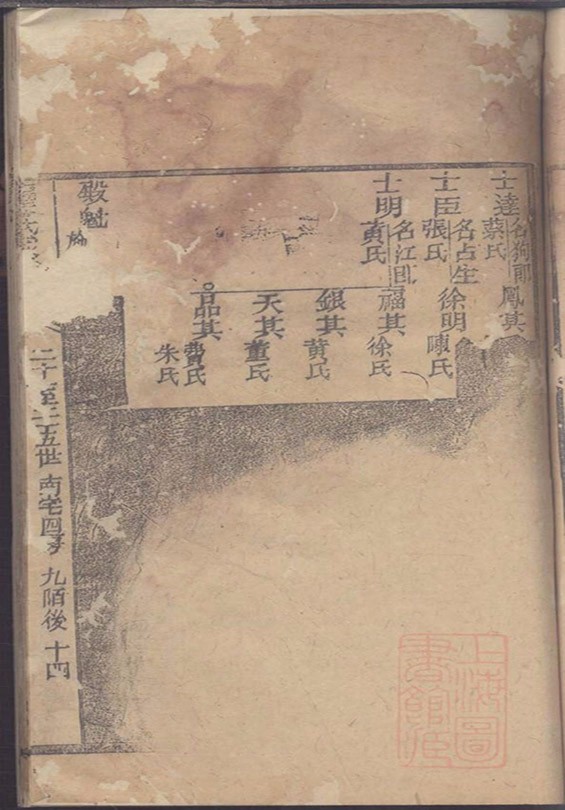 士達 名狗 鳳其
蔡氏
士臣 名占生 徐明 陳氏
張氏
士明 名江 福其 徐氏
黃氏
銀其 黃氏
天其 董氏
品其 費氏
朱氏
毀魁
二十至二五世 南宅四房 九陌後 十四
上海圖書館臧